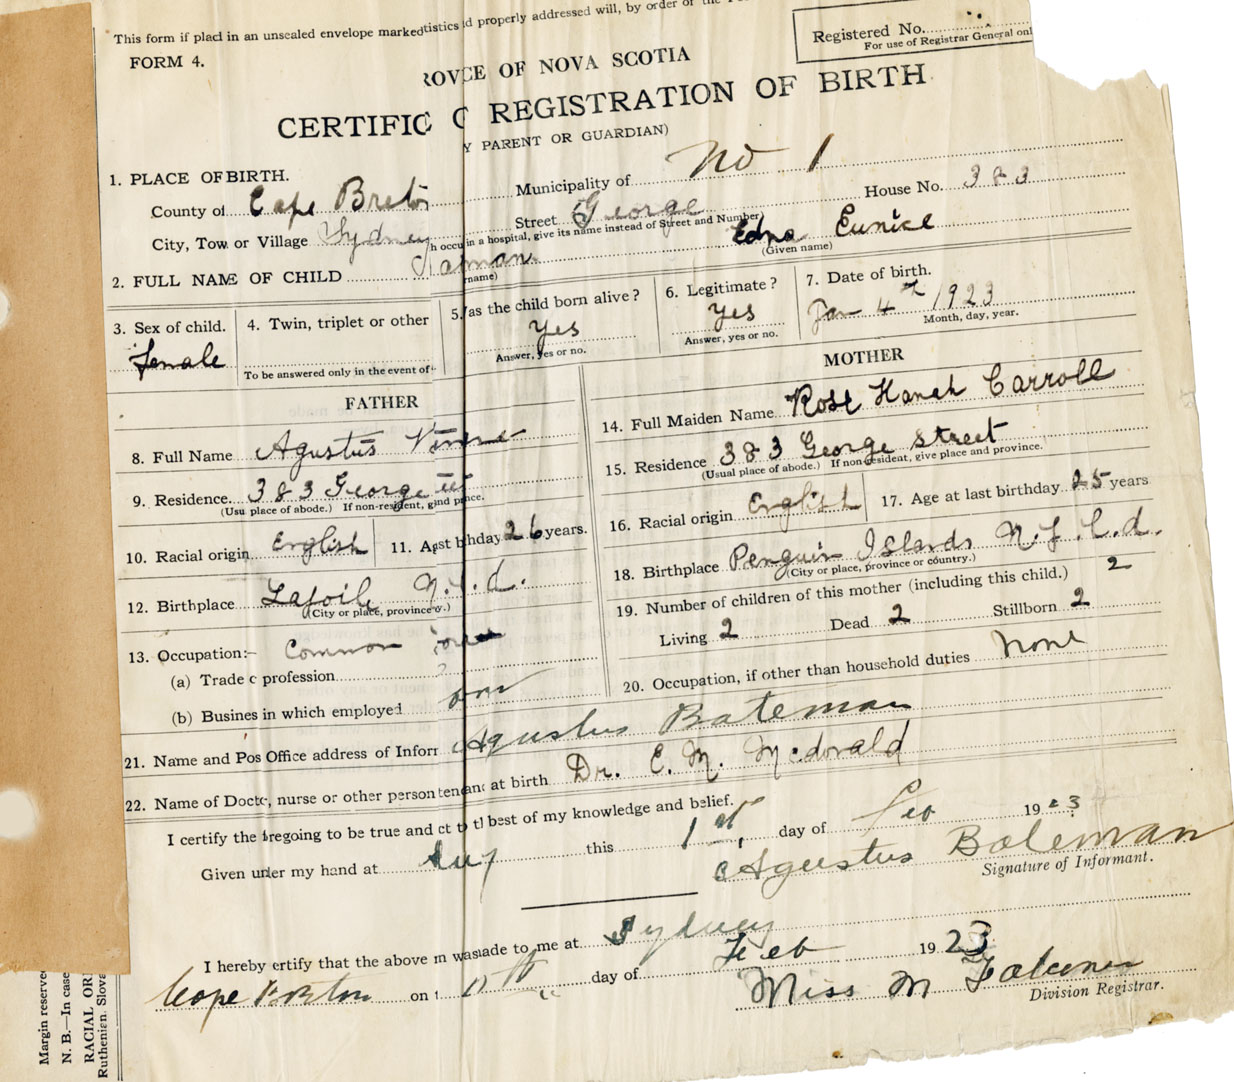 This form if placd in an unsealed envelope marked tistics d properly addressed will, by order of the
FORM 4.
Registered No.
For use of Registrar General onl
ROVCE OF NOVA SCOTIA
CERTIFIC REGISTRATION OF BIRTH
Y PARENT OR GUARDIAN)
1. PLACE OF BIRTH.
County of Cape Breton Municipality of No 1
City, Tow or Village Sydney Street George House No. 383
h occu in a hospital, give its name instead of Street and Number)
2. FULL NAME OF CHILD ateman Edna Eunice
rname) (Given name)
3. Sex of child. 4. Twin, triplet or other 5. as the child born alive? 6. Legitimate? 7. Date of birth.
female yes yes Jan 4th 1923
To be answered only in the event of Answer, yes or no. Answer, yes or no. Month, day, year.
FATHER
8. Full Name Agustus
9. Residence 383 George
(Usu place of abode.) If non-resident, g nd p ce.
10. Racial origin English 11. A st b hday 26 years.
12. Birthplace Lapoile N.F.d.
(City or place, province o .)
13. Occupation:- Common
(a) Trade o profession
(b) Busines in which employed
MOTHER
14. Full Maiden Name Rose Hanah Carroll
15. Residence 383 George Street
(Usual place of abode.) If non-resident, give place and province.
16. Racial origin English 17. Age at last birthday 25 years
18. Birthplace Penguin Islands N.f.l.d.
(City or place, province or country.)
19. Number of children of this mother (including this child.) 2
Living 2 Dead 2 Stillborn 2
20. Occupation, if other than household duties None
21. Name and Pos Office address of Inforr Agustus Bateman
22. Name of Docto, nurse or other person tendanc at birth Dr. E. M. Mcdonald
I certify the fregoing to be true and c t to tl best of my knowledge and belief.
Given under my hand at this 1st day of Feb 1923
Agustus Bateman
Signature of Informant.
I hereby certify that the above n was ade to me at Sydney
Cape Breton on t 11th day of Feb 1923
Miss M Falconer
Division Registrar.
Margin reserved
N. B.—In case
RACIAL OR
Ruthenian, Slova